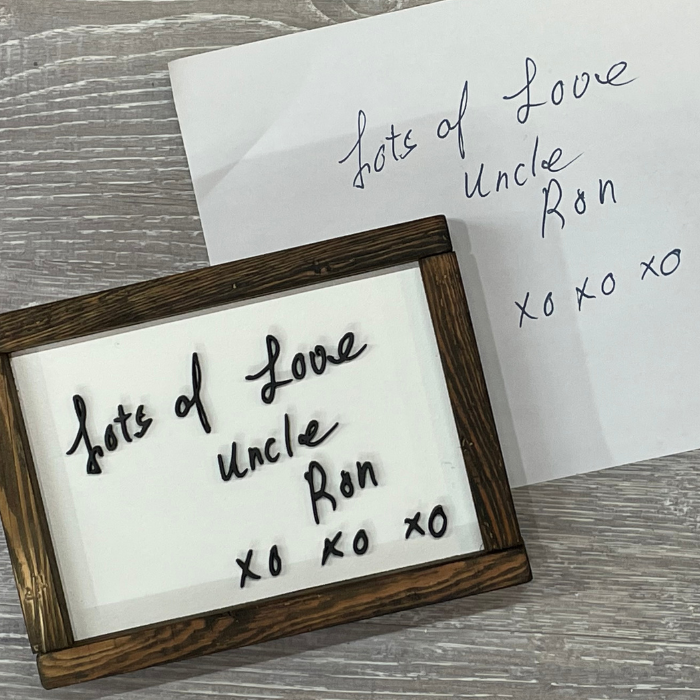 Lots of Love
Uncle
Ron
xo xo xo
Lots of Love
Uncle
Ron
xo xo xo